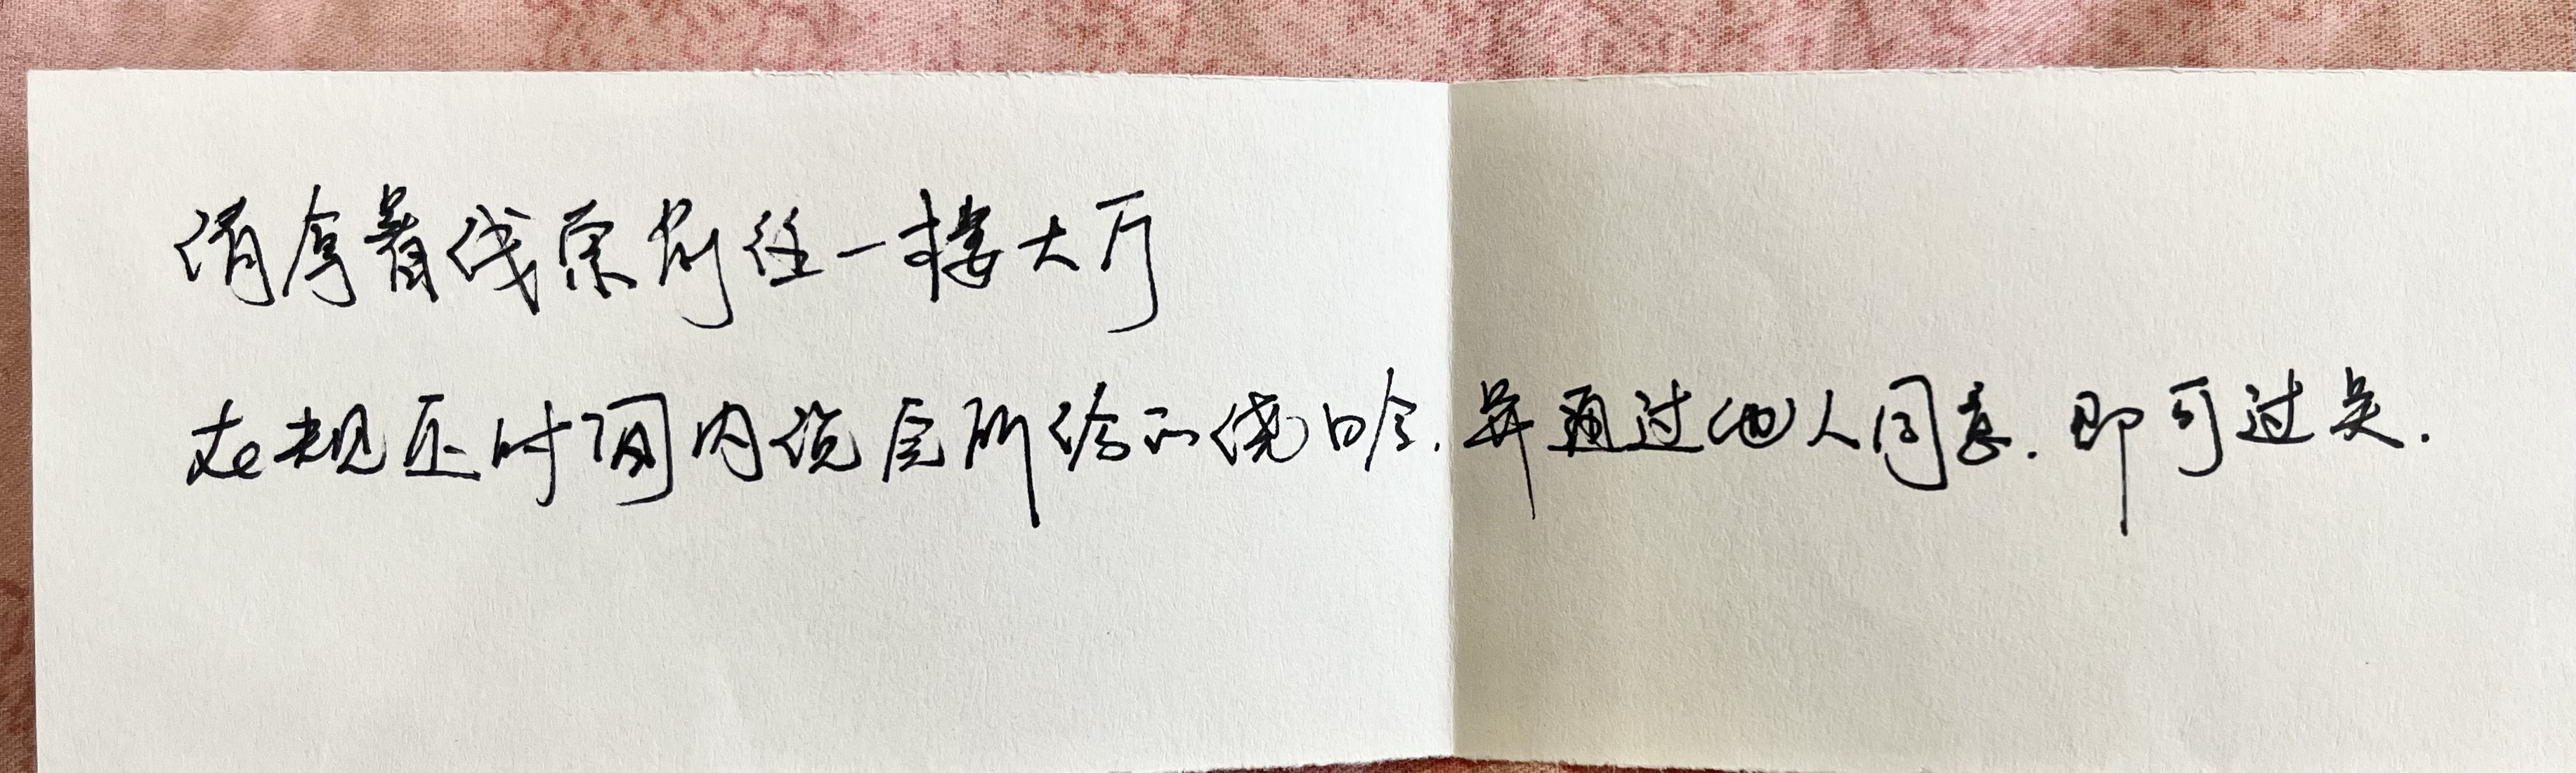 请拿着线索前往一楼大厅
在规正时间内说完所给的绕口令.并通过他人同意.即可过关.